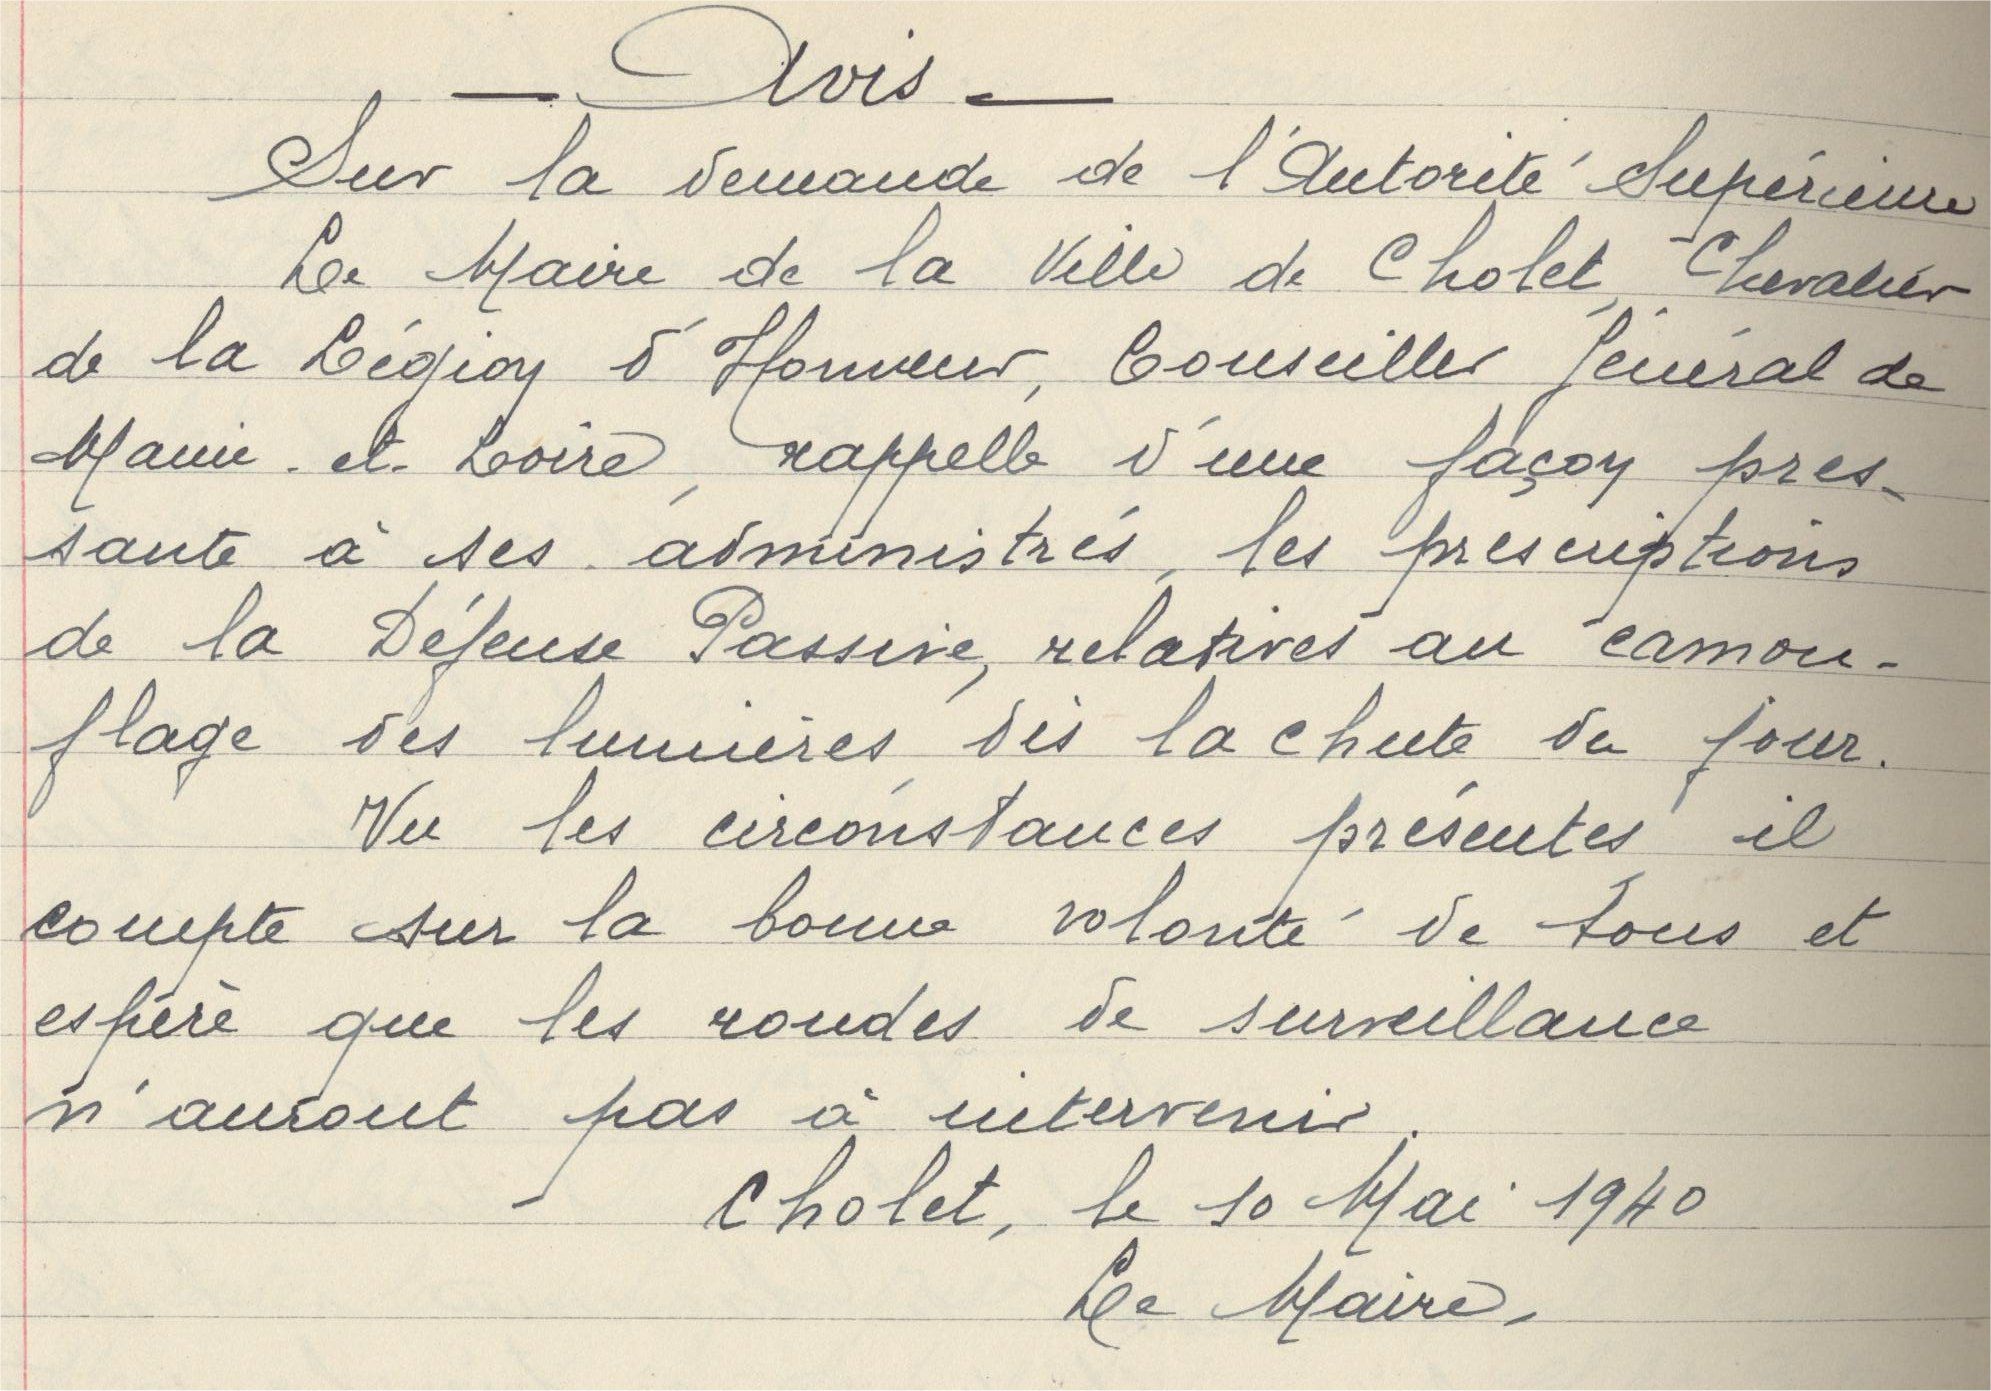 — Avis —
Sur la demande de l'Autorité Supérieure
Le Maire de la Ville de Cholet, Chevalier
de la Légion d'Honneur, Conseiller Général de
Maine-et-Loire, rappelle d'une façon pres-
sante à ses administrés, les prescriptions
de la Défense Passive, relatives au camou-
flage des lumières, dès la chute du jour.
Vu les circonstances présentes, il
compte sur la bonne volonté de tous et
espère que les rondes de surveillance
n'auront pas à intervenir.
Cholet, le 10 Mai 1940
Le Maire,